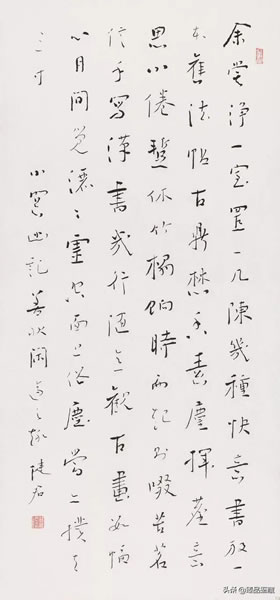 余嘗淨一室置一几陳幾種快意書放一
本舊法帖古鼎焚香素麈揮塵意
思小倦暫休竹榻餉時而起則啜苦茗
信手寫漢書幾行隨意觀古畫數幅
心目間覺灑灑靈空面上俗塵當亦撲去
三寸
小窗幽記
头条